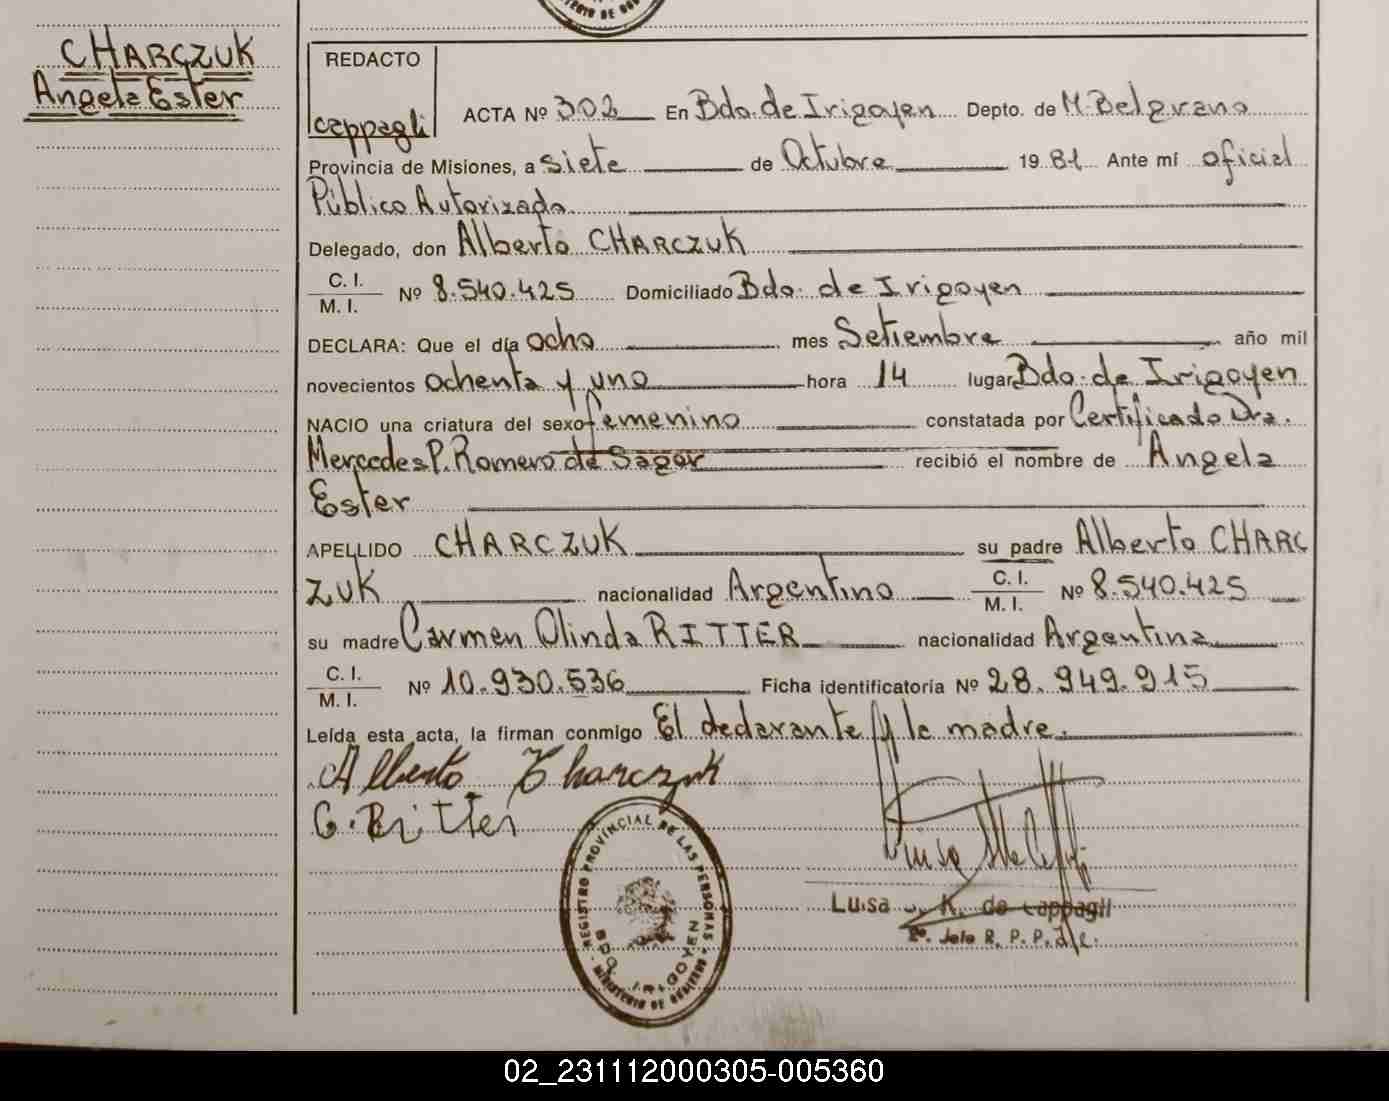 CHARCZUK
Angela Ester
REDACTO
cappagli
ACTA Nº 302 En Bdo. de Irigoyen Depto. de M. Belgrano
Provincia de Misiones, a siete de Octubre 19 81 Ante mí oficial
Público Autorizado
Delegado, don Alberto CHARCZUK
C. I.
M. I. Nº 8.540.425 Domiciliado Bdo. de Irigoyen
DECLARA: Que el día ocho mes Setiembre año mil
novecientos ochenta y uno hora 14 lugar Bdo. de Irigoyen
NACIO una criatura del sexo femenino constatada por Certificado Dra.
Mercedes P. Romero de Sager recibió el nombre de Angela
Ester
APELLIDO CHARCZUK su padre Alberto CHARC
ZUK nacionalidad Argentino C. I. M. I. Nº 8.540.425
su madre Carmen Olinda RITTER nacionalidad Argentina
C. I.
M. I. Nº 10.930.536 Ficha identificatoria Nº 28.949.915
Leída esta acta, la firman conmigo El declarante y la madre.
Alberto Charczuk
C. Ritter
REGISTRO PROVINCIAL DE LAS PERSONAS
BDO. IRIGOYEN
MINISTERIO DE GOBIERNO
Luisa K. de Cappagli
Jefe R. P. P.
02_231112000305-005360